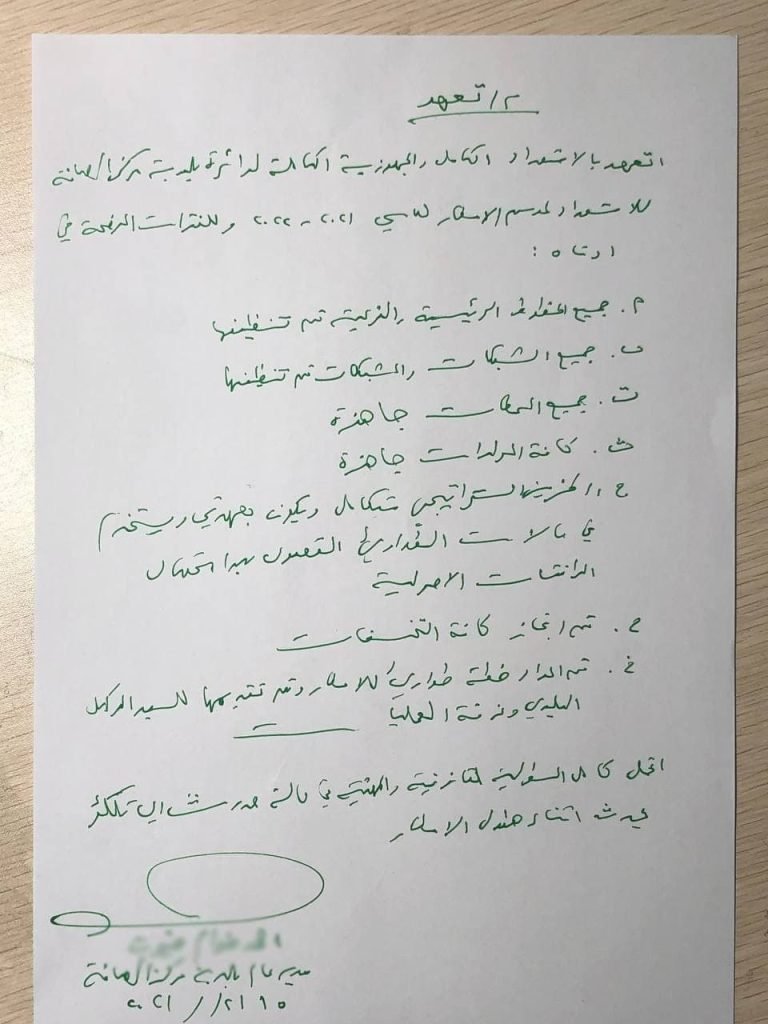 م/ تعهد
اتعهد بالاستعداد الكامل والجهوزية الكاملة لدائرة بلدية مركز الرصافة
للاستعداد لموسم الامطار لموسمي ٢٠٢١ - ٢٠٢٢ وللفقرات الموضحة في
ادناه :
أ. جميع الخطوط الرئيسية والفرعية تم تنظيفها
ب. جميع الشبكات والمشبكات تم تنظيفها
ت. جميع المحطات جاهزة
ث. كافة المولدات جاهزة
ج. الخزين الستراتيجي متكامل ويكون بعهدتي ويستخدم
في حالات الطوارئ القصوى بعد استعمال
الاصولية
ح. تم انجاز كافة التخسفات
خ. تم اعداد خطة طوارئ للامطار وتم تقديمها للسيد الوكيل
البلدي وغرفة العمليات
اتحمل كامل المسؤولية القانونية والمهنية في حالة حدوث اي تلكؤ
يحدث اثناء هطول الامطار
مدير عام بلدية مركز الرصافة